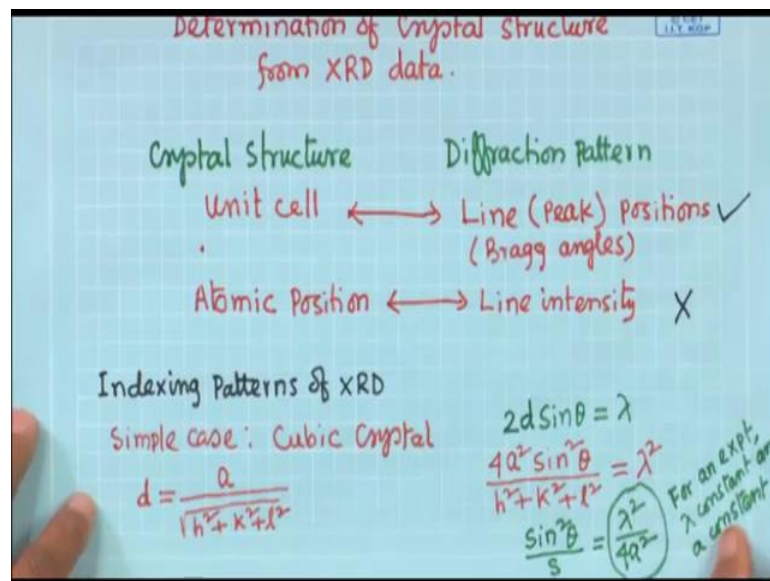 Determination of Crystal Structure
from XRD data.
I.I.T. KGP
Crystal Structure Diffraction Pattern
Unit cell ⟷ Line (Peak) Positions ✓
(Bragg angles)
Atomic Position ⟷ Line intensity X
Indexing Patterns of XRD
Simple case : Cubic Crystal
d = a / √h²+k²+l²
2d Sinθ = λ
4a² sin²θ / h²+k²+l² = λ²
Sin²θ / s = λ² / 4a²
For an expt,
λ constant an
a constant